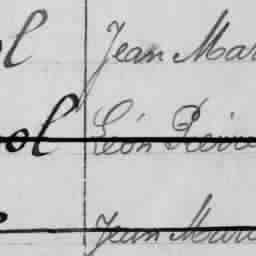 ol Jean Mar
ol Léon Pierre
Jean Marie